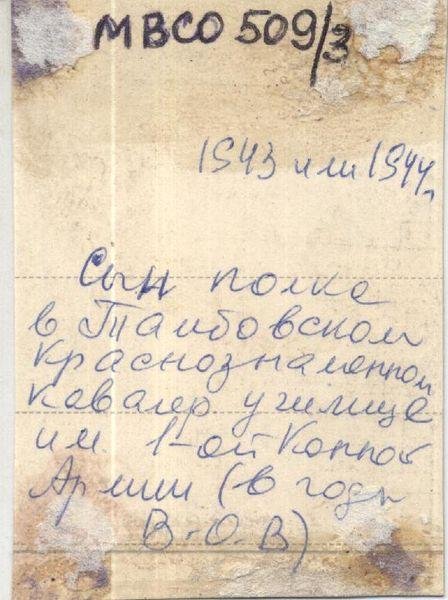 МВСО 509/3
1943 или 1944 г.
Сын полка
в Тамбовском
Краснознаменном
кавалер училище
им 1-ой Конной
Армии (в годы
В.О.В)